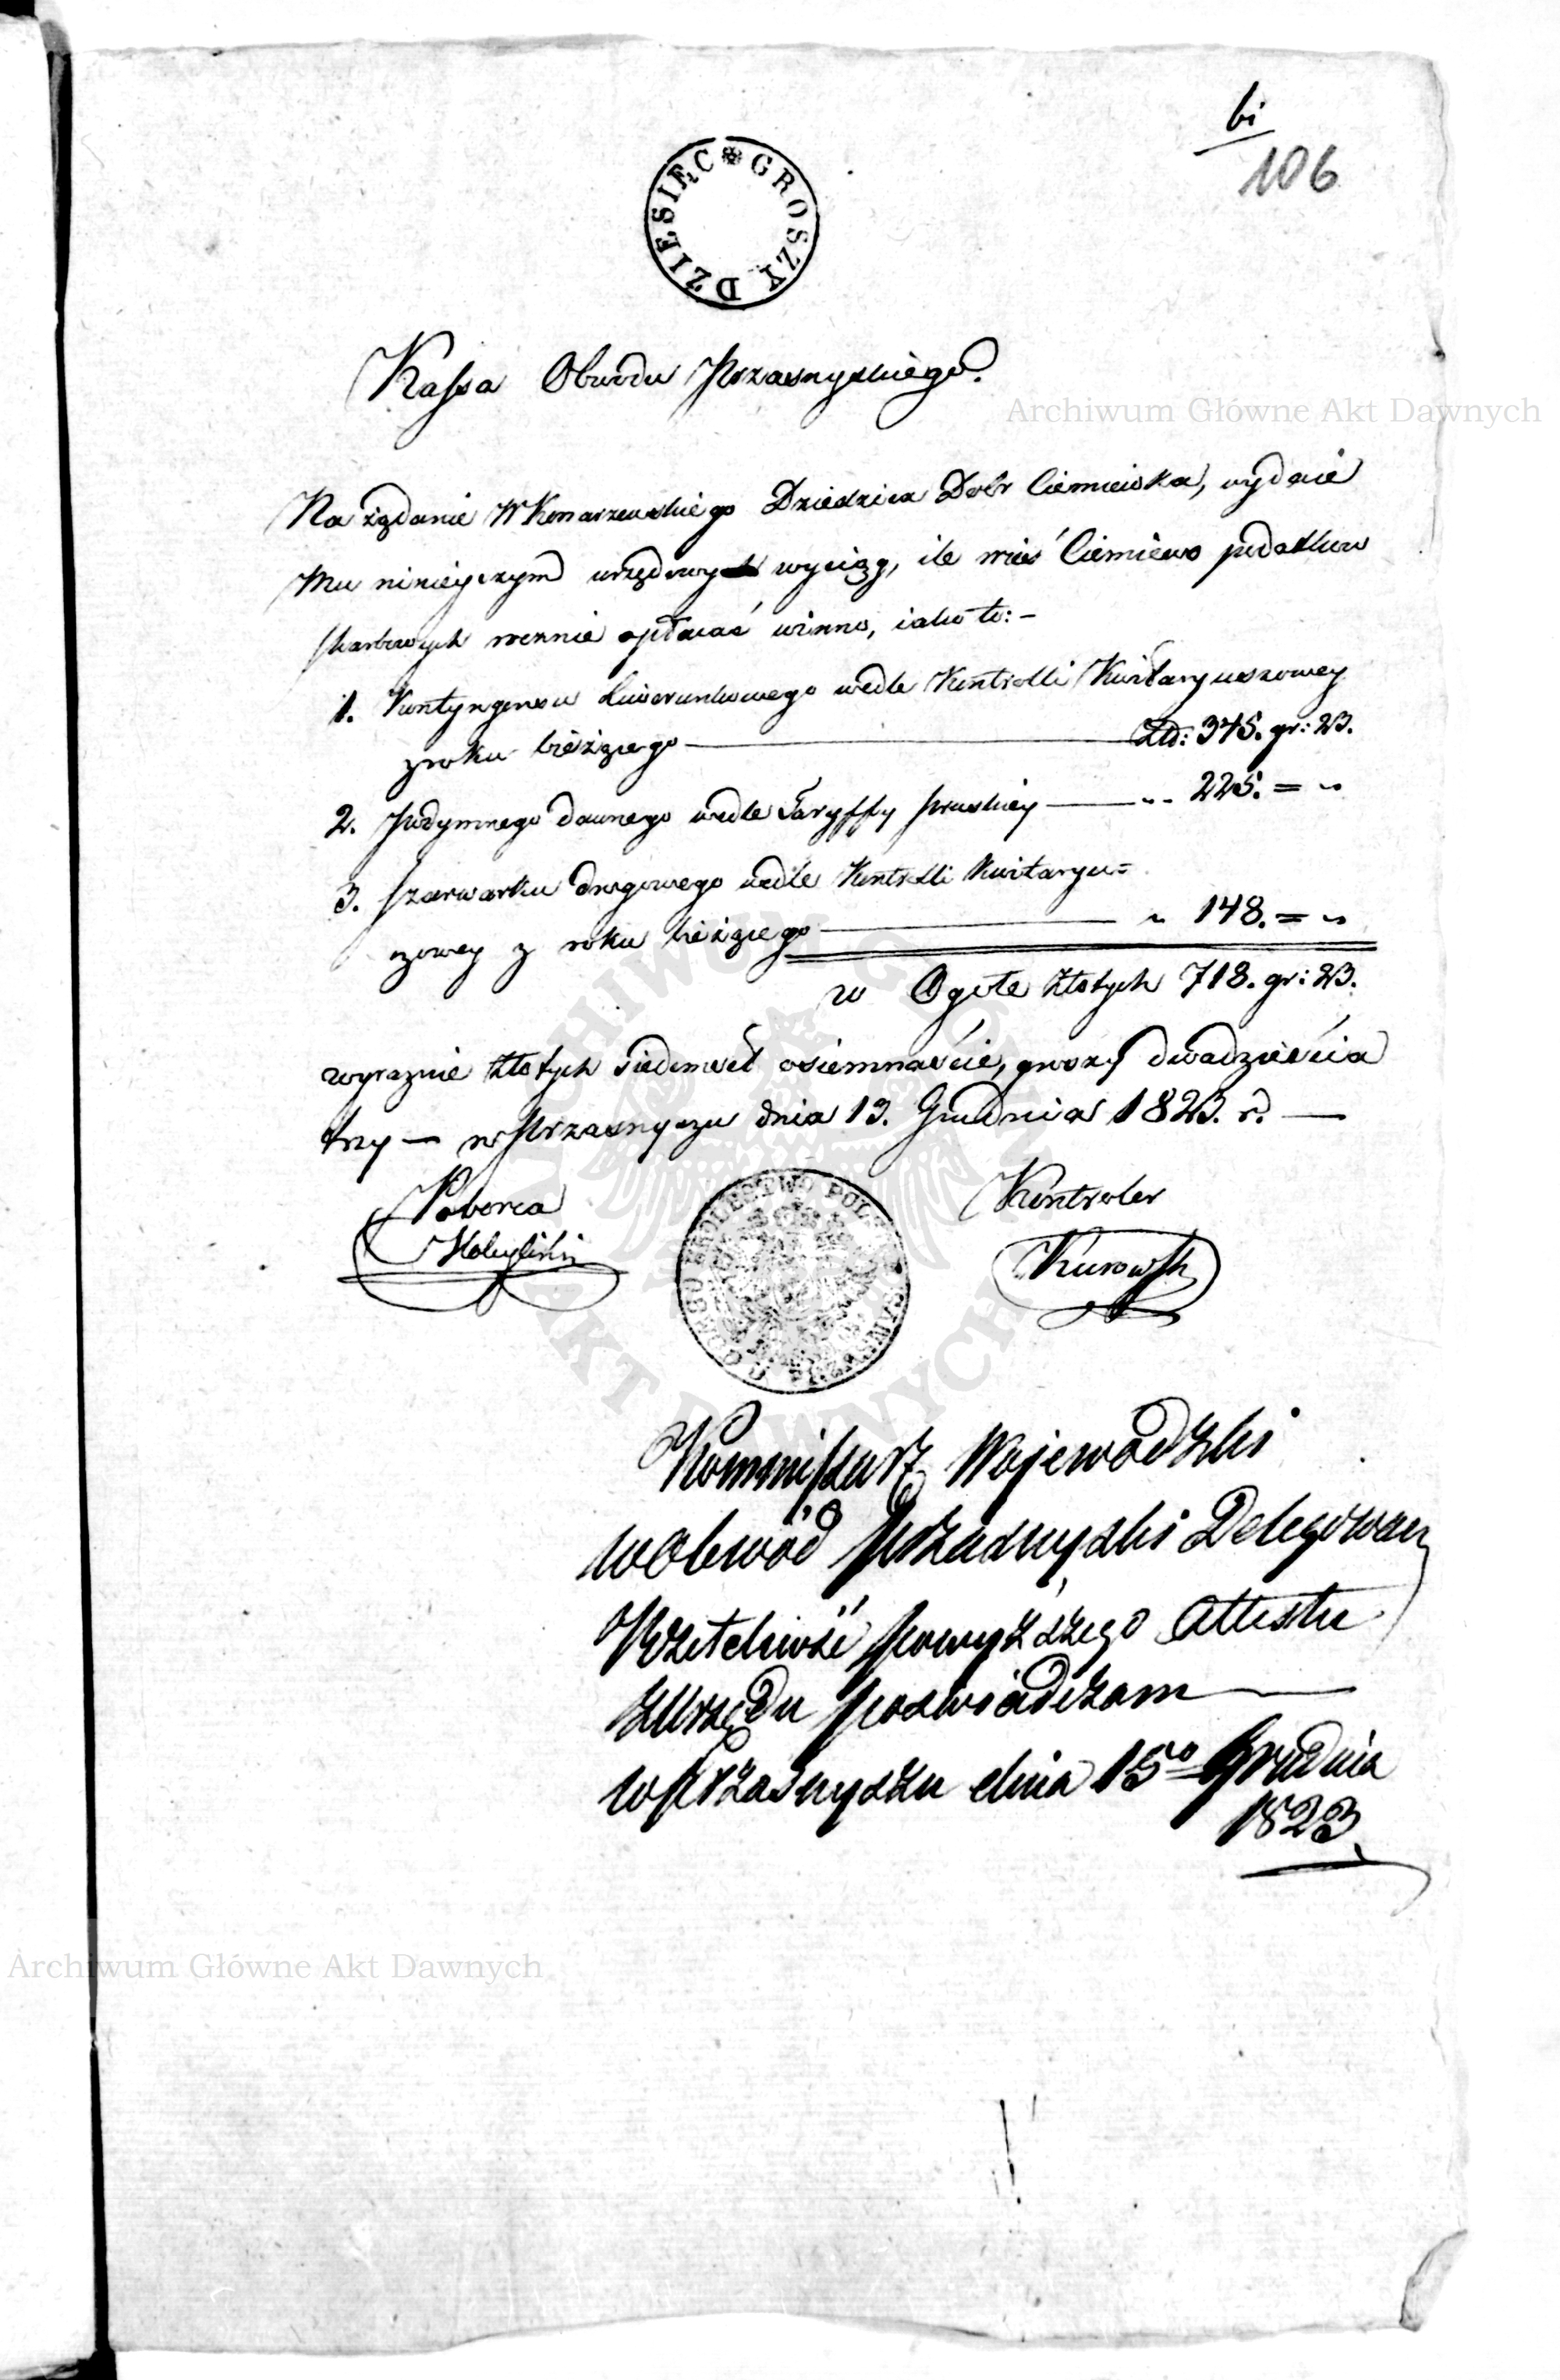 bi
106
DZIESIĘC GROSZY
Kassa Obwodu Przasnyskiego.
Archiwum Główne Akt Dawnych
Na żądanie W Konarzewskiego Dziedzica Dóbr Ciemniewka, wydaie
Mu ninieyszym urzędowy wyciąg, ile wieś Ciemniewo podatków
skarbowych rocznie opłacać winno, iako to: –
1. Kontyngensu Liwerunkowego wedle Kontrolli Kwitaryuszowey
z roku bieżącego — Złł: 345. gr: 23.
2. Podymnego dawnego wedle Taryffy pruskiey — „ 225. = „
3. Szarwarku drogowego wedle Kontrolli Kwitaryu=
szowey z roku bieżącego — „ 148. = „
w Ogóle Złotych 718. gr: 23.
wyraznie Złotych siedmset osiemnaście, groszy dwadzieścia
trzy — w Przasnyszu dnia 13. Grudnia 1823. r. —
Poborca
Kobyliński
KROLESTWO POLS
Kontroler
Kurowski
ARCHIWUM GŁÓWNE AKT DAWNYCH
Kommissarz Wojewódzki
w Obwód Przasnyski Delegowany
Rzetelność powyższego Attestu
z Urzędu poswiadczam —
w Przasnyszu dnia 15º Grudnia
1823
Archiwum Główne Akt Dawnych